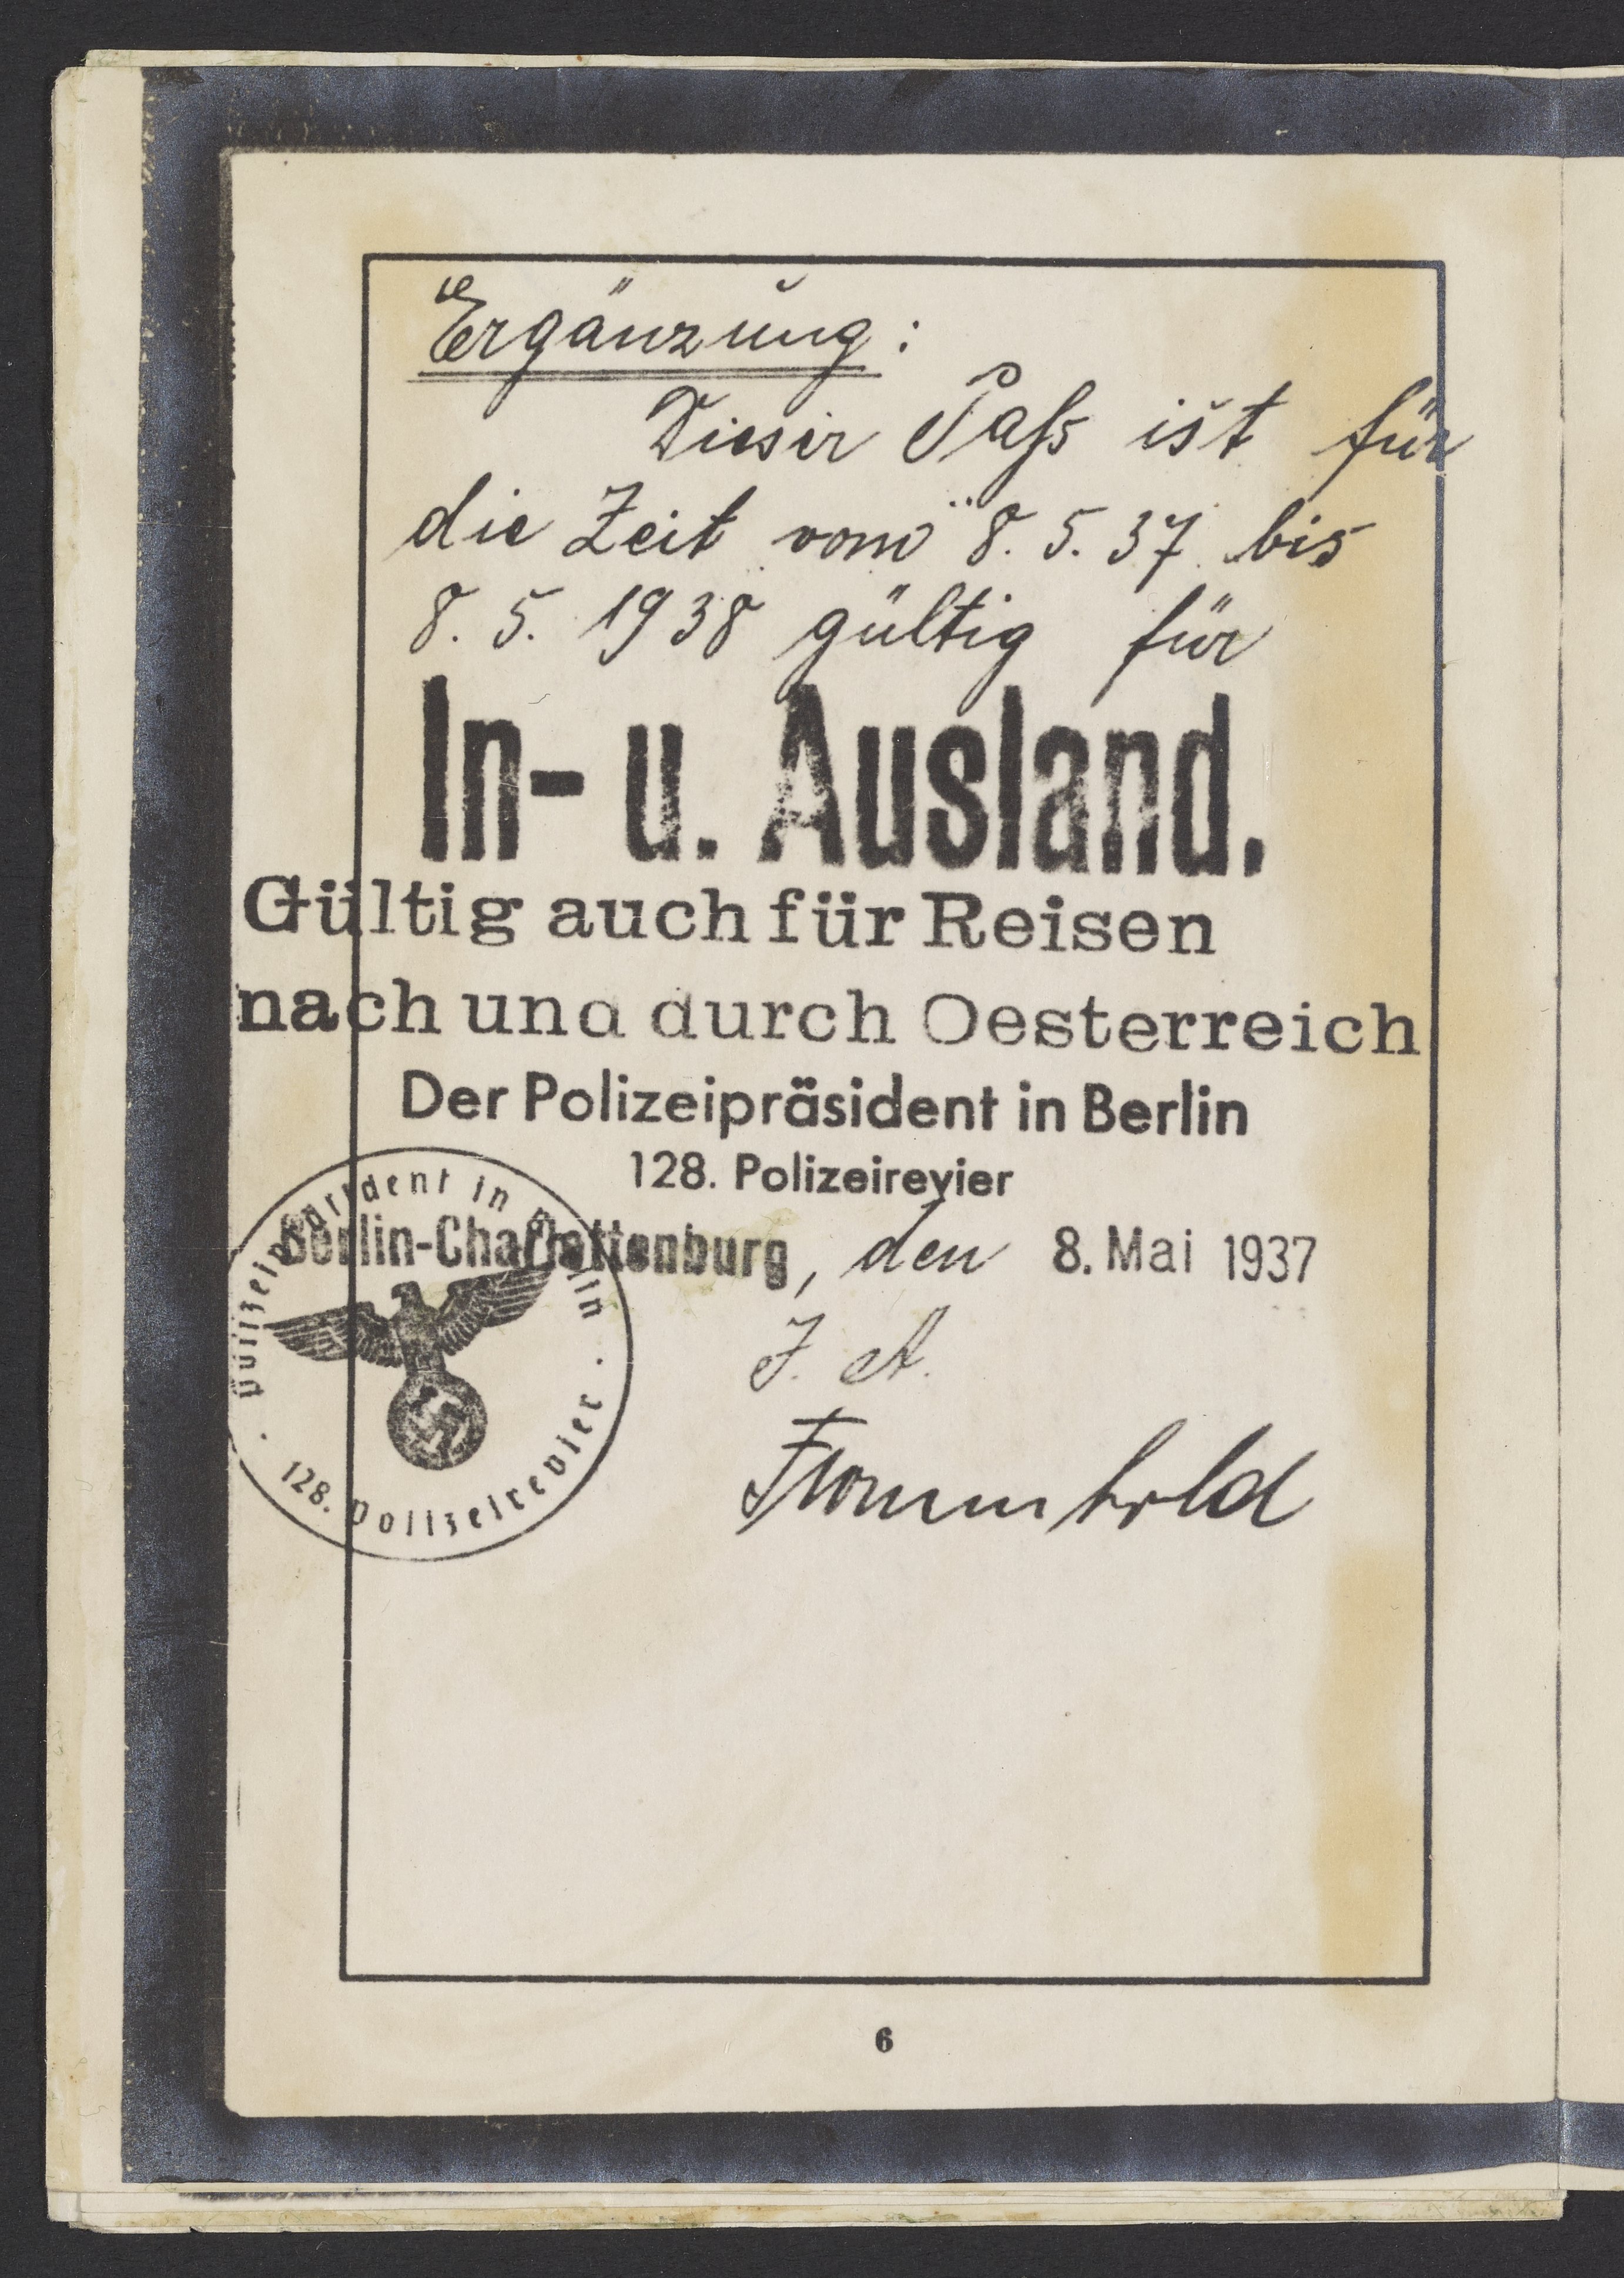 Ergänzung:
Dieser Paſs ist für
die Zeit vom 8. 5. 37 bis
8. 5. 1938 gültig für
In- u. Ausland.
Gültig auch für Reisen
nach und durch Oesterreich
Der Polizeipräsident in Berlin
128. Polizeirevier
Berlin-Charlottenburg, den 8. Mai 1937
J. A.
Frommhold
Polizeipräsident in Berlin
128. Polizeirevier
6